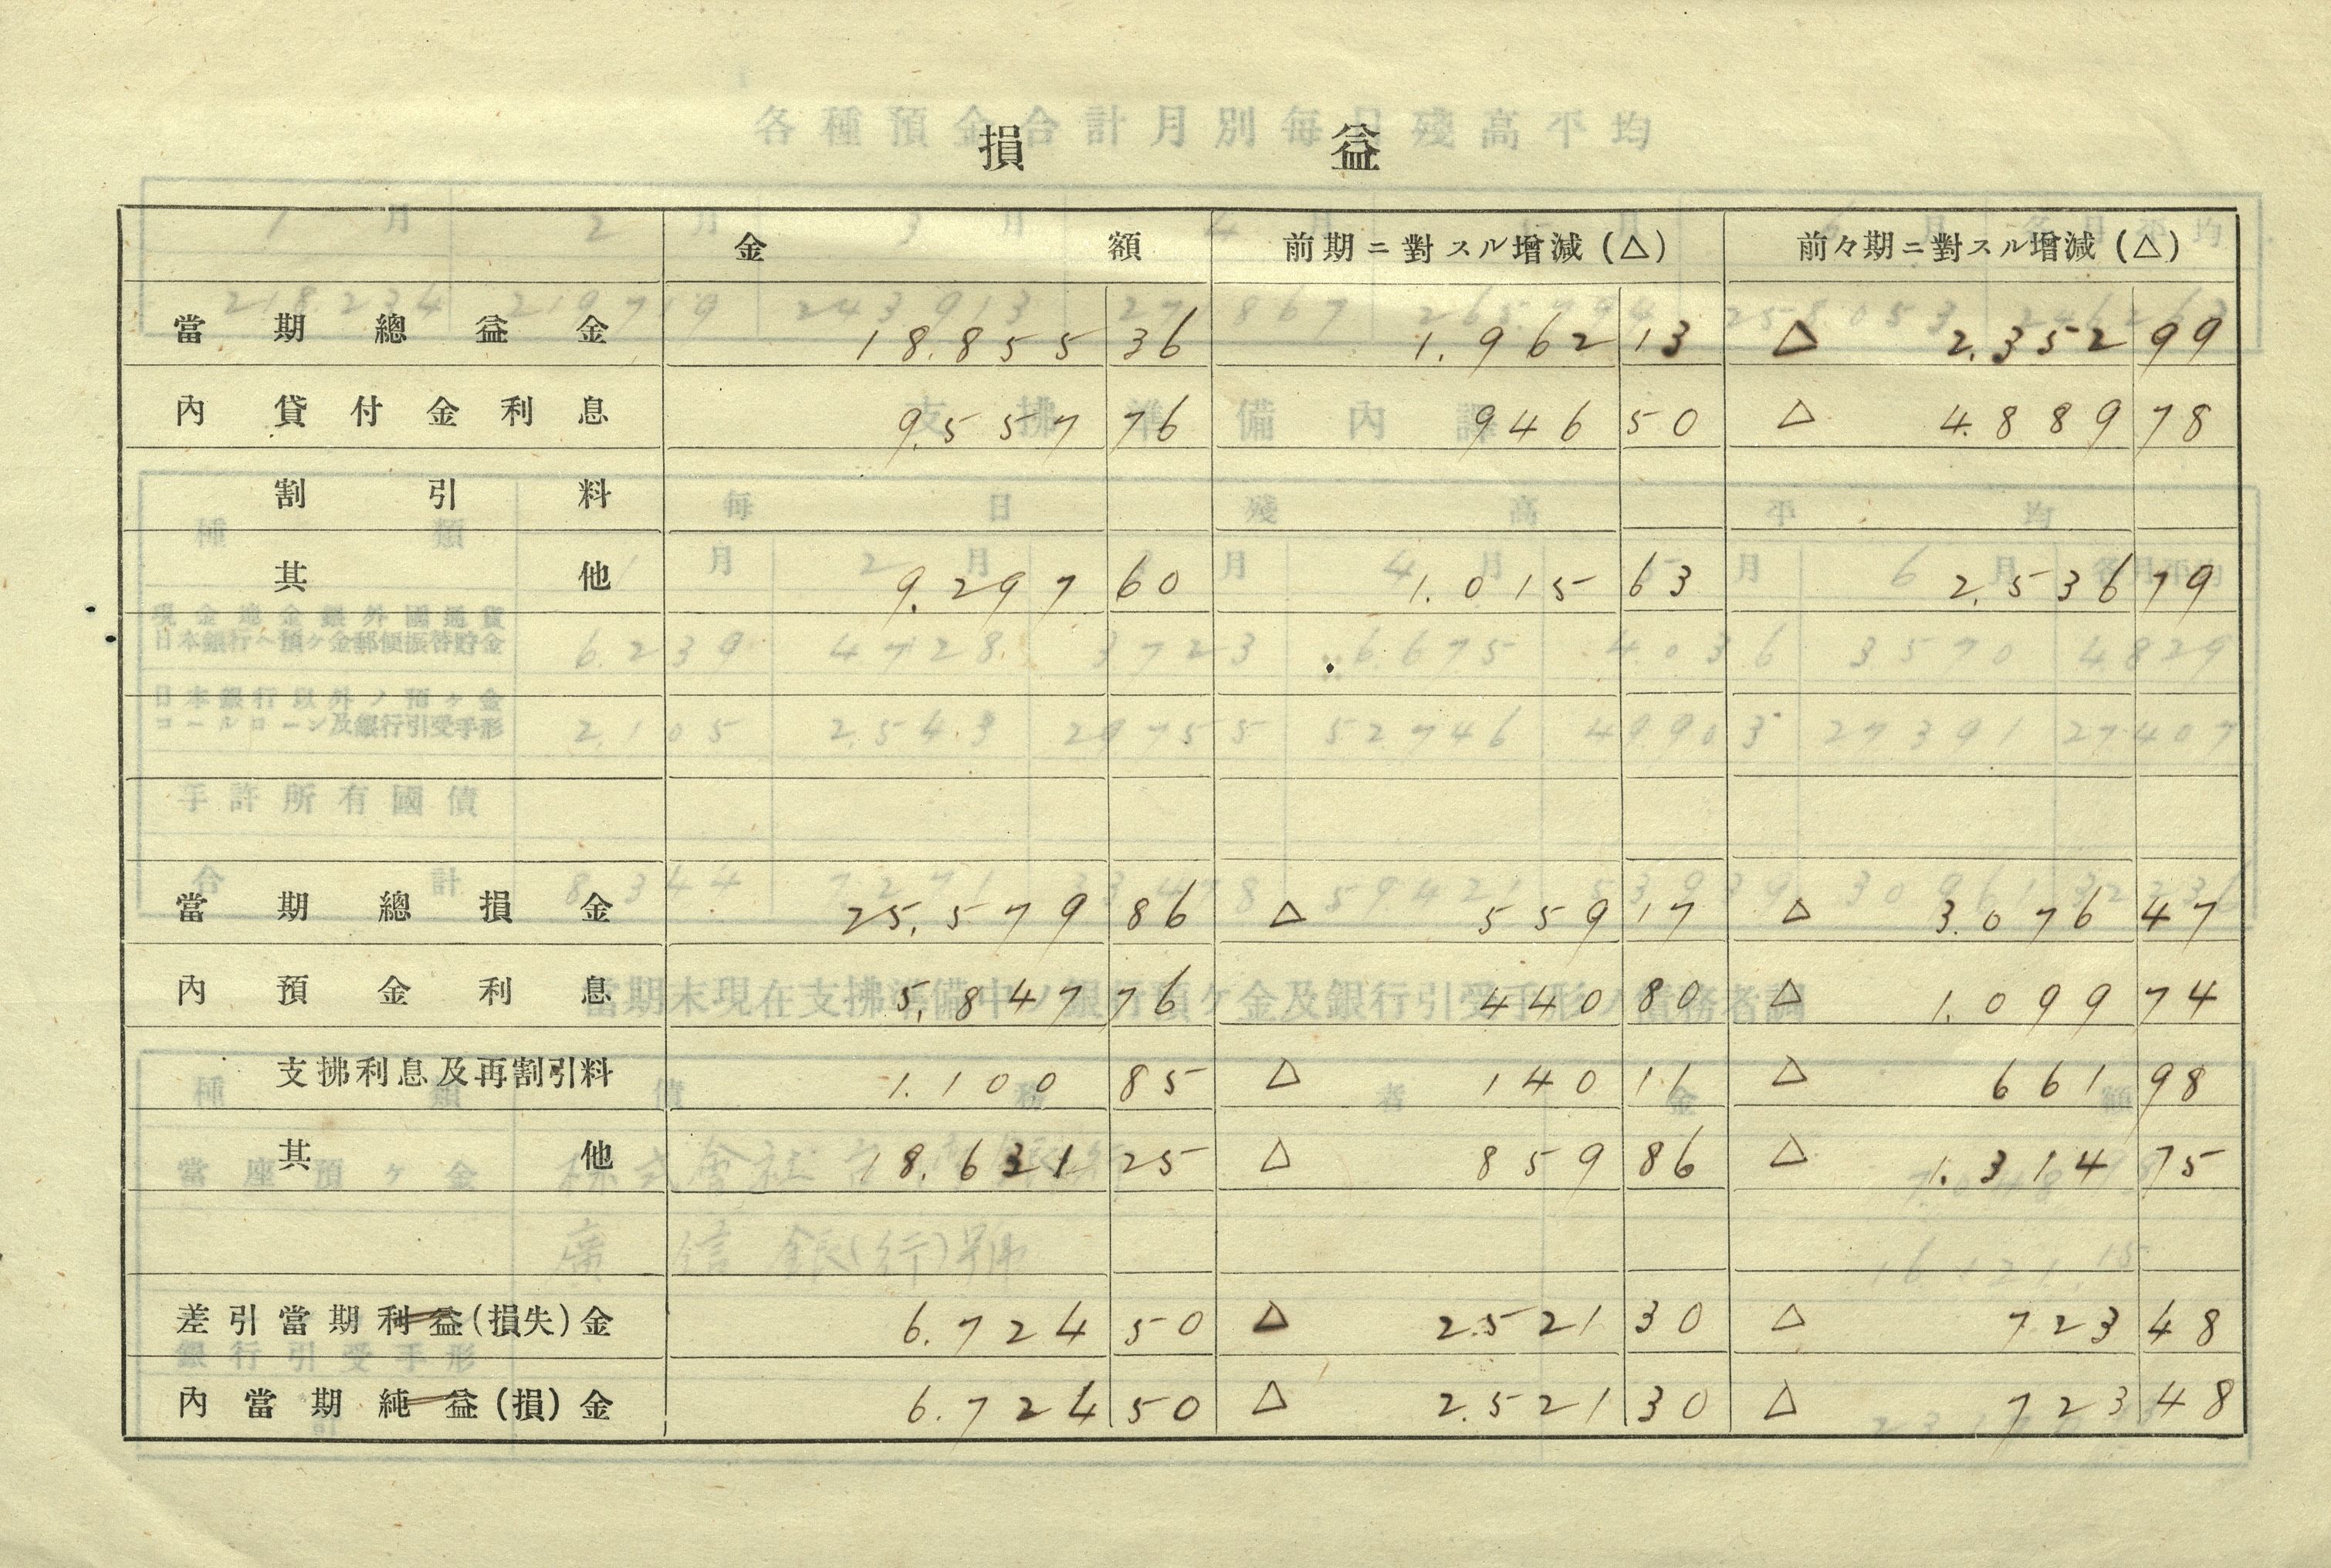 損益
金額 前期ニ對スル增減(△) 前々期ニ對スル增減(△)
當期總益金 18.855 36 1.962 13 △ 2.352 99
內 貸付金利息 9.557 76 946 50 △ 4.889 78
割引料
其他 9.297 60 1.015 63 2.536 79
當期總損金 25.579 86 △ 559 17 △ 3.076 47
內 預金利息 5.847 76 440 80 △ 1.099 74
支拂利息及再割引料 1.100 85 △ 140 11 △ 661 98
其他 18.631 25 △ 859 86 △ 1.314 75
差引當期利益(損失)金 6.724 50 △ 2.521 30 △ 723 48
內當期純益(損)金 6.724 50 △ 2.521 30 △ 723 48